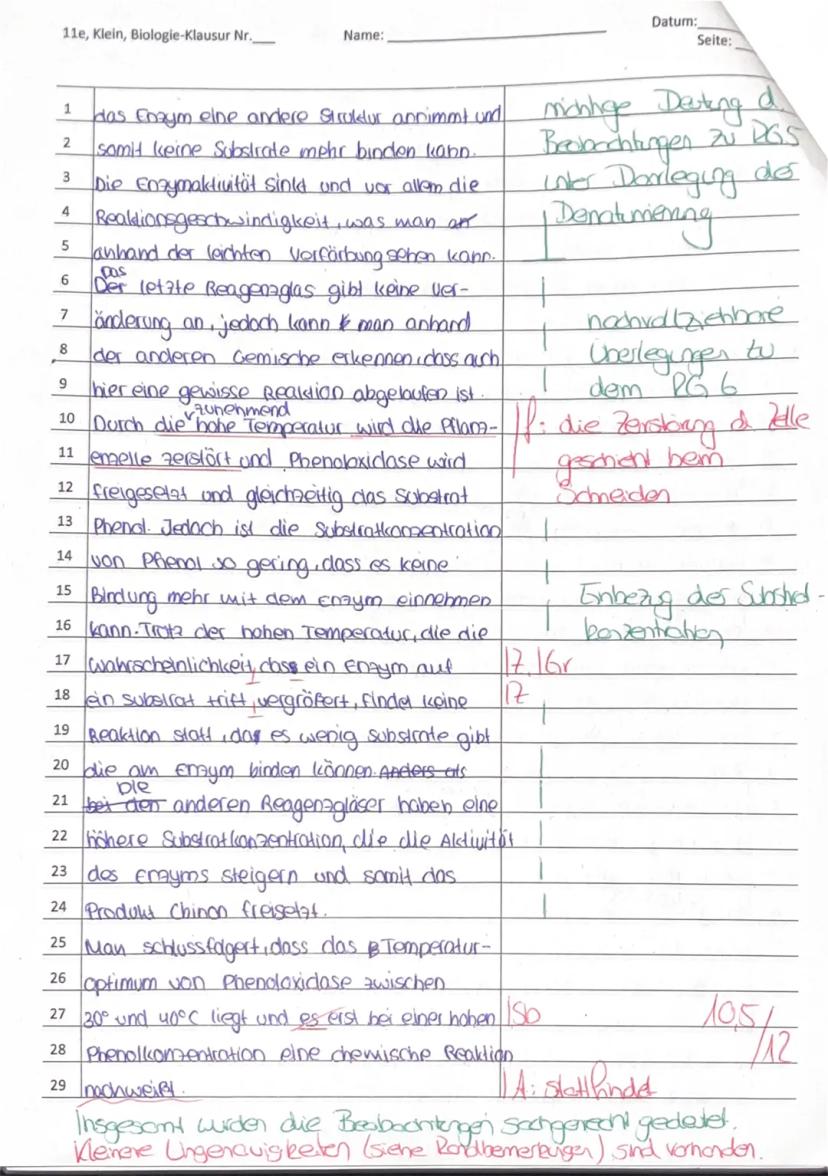 11e, Klein, Biologie-Klausur Nr.___ Name: ___ Datum:___
Seite:___
1 das Enzym eine andere Struktur annimmt und
2 somit keine Substrate mehr binden kann.
3 Die Enzymaktivität sinkt und vor allem die
4 Reaktionsgeschwindigkeit, was man an
5 anhand der leichten Verfärbung sehen kann.
Das
6 Der letzte Reagenzglas gibt keine Ver-
7 änderung an, jedoch kann man anhand
8 der anderen Gemische erkennen, dass auch
9 hier eine gewisse Reaktion abgelaufen ist.
zunehmend
10 Durch die hohe Temperatur wird die Pflanz-
11 enzelle zerstört und Phenoloxidase wird
12 freigesetzt und gleichzeitig das Substrat
13 Phenol. Jedoch ist die Substratkonzentration
14 von Phenol so gering, dass es keine
15 Bindung mehr mit dem Enzym einnehmen
16 kann. Trotz der hohen Temperatur, die die
17 Wahrscheinlichkeit, dass ein Enzym auf
18 ein Substrat trift, vergrößert, findet keine
19 Reaktion statt, das es wenig Substrate gibt
20 die am Enzym binden können. Anders als
Die
21 bei den anderen Reagenzgläser haben eine
22 höhere Substratkonzentration, die die Aktivität
23 des Enzyms steigern und somit das
24 Produkt Chinon freisetzt.
25 Man schlussfolgert, dass das Temperatur-
26 optimum von Phenoloxidase zwischen
27 30° und 40°C liegt und es erst bei einer hohen
28 Phenolkonzentration eine chemische Reaktion
29 nachweißt.
richtige Deutung d.
Beobachtungen zu RG5
unter Darlegung der
Denaturierung
nachvollziehbare
Überlegungen zu
dem RG 6
f: die Zerstörung d. Zelle
geschieht beim
Schneiden
Einbezug der Substrat-
konzentration
IZ, IGr
IZ
Sb
10,5/
/12
A: stattfindet
Insgesamt wurden die Beobachtungen sachgerecht gedeutet.
Kleinere Ungenauigkeiten (siehe Randbemerkungen) sind vorhanden.